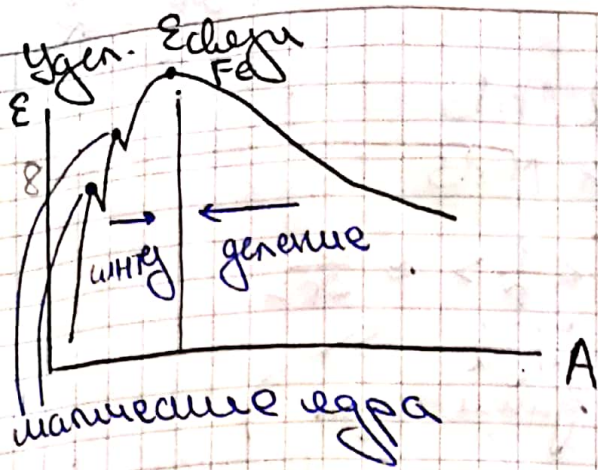 Удел. Eсвязи
Fe
ε
8
синтез
деление
A
магические ядра